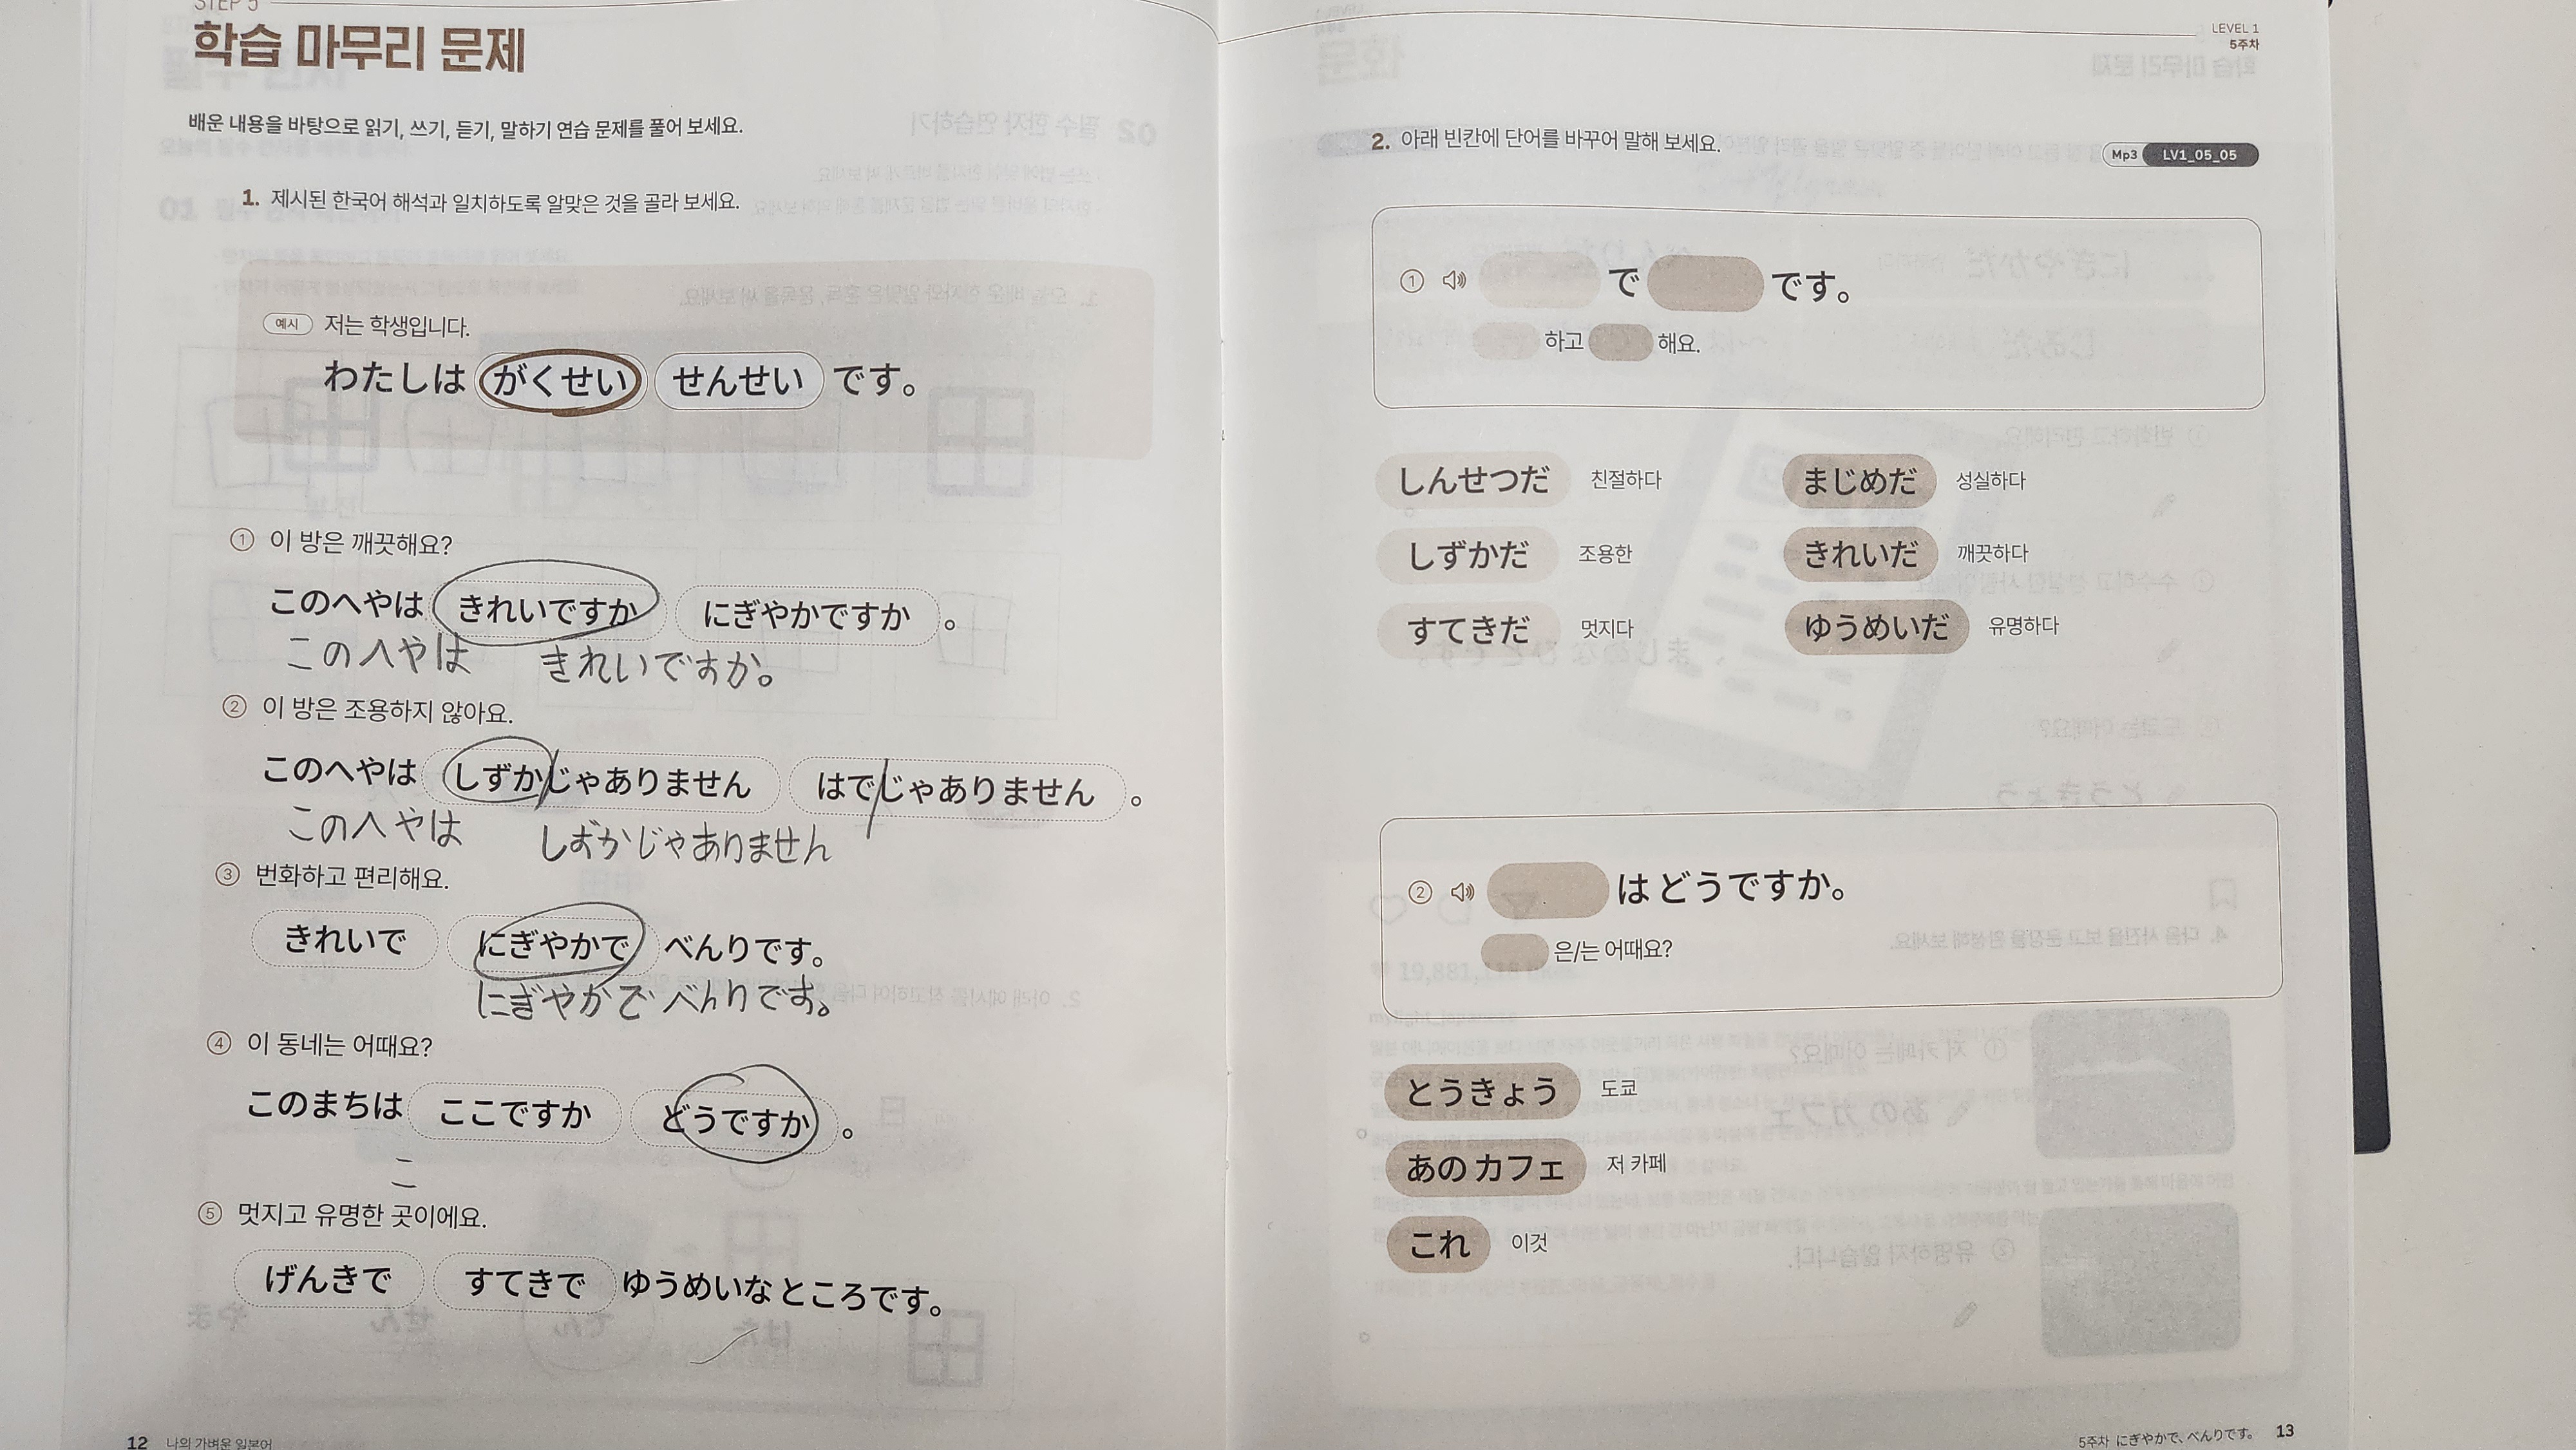 STEP 5
학습 마무리 문제
배운 내용을 바탕으로 읽기, 쓰기, 듣기, 말하기 연습 문제를 풀어 보세요.
1. 제시된 한국어 해석과 일치하도록 알맞은 것을 골라 보세요.
예시 저는 학생입니다.
わたしは がくせい せんせい です。
① 이 방은 깨끗해요?
このへやは きれいですか にぎやかですか 。
このへやは きれいですか。
② 이 방은 조용하지 않아요.
このへやは しずかじゃありません はでじゃありません 。
このへやは しずかじゃありません
③ 번화하고 편리해요.
きれいで にぎやかで べんりです。
にぎやかで べんりです。
④ 이 동네는 어때요?
このまちは ここですか どうですか 。
こ
⑤ 멋지고 유명한 곳이에요.
げんきで すてきで ゆうめいなところです。
12 나의 가벼운 일본어
LEVEL 1
5주차
2. 아래 빈칸에 단어를 바꾸어 말해 보세요.
Mp3 LV1_05_05
① で です。
하고 해요.
しんせつだ 친절하다 まじめだ 성실하다
しずかだ 조용한 きれいだ 깨끗하다
すてきだ 멋지다 ゆうめいだ 유명하다
② は どうですか。
은/는 어때요?
とうきょう 도쿄
あの カフェ 저 카페
これ 이것
5주차 にぎやかで、べんりです。 13